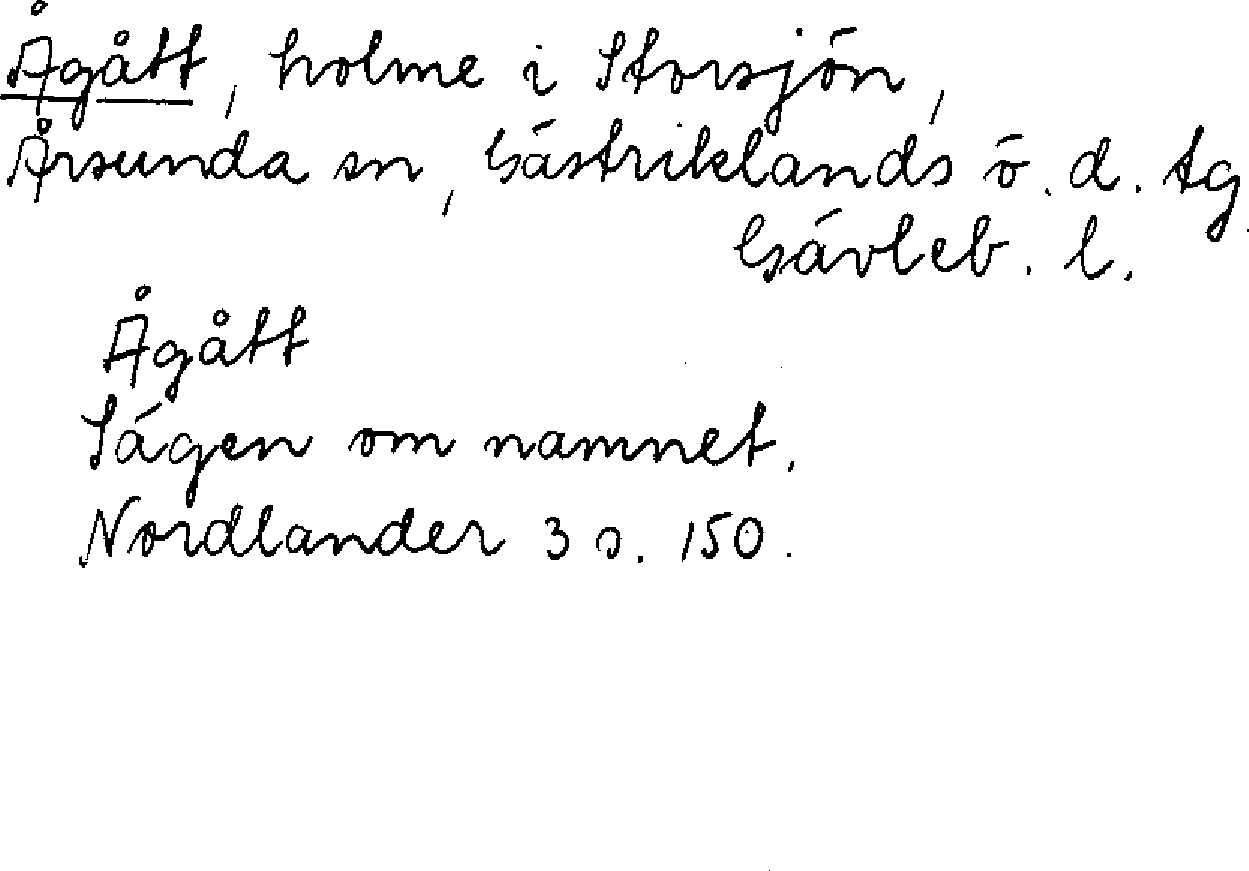 Ågått, holme i Storsjön,
Årsunda sn, Gästriklands ö. d. tg
Gävleb. l.
Ågått
Sägen om namnet.
Nordlander 3 s. 150.